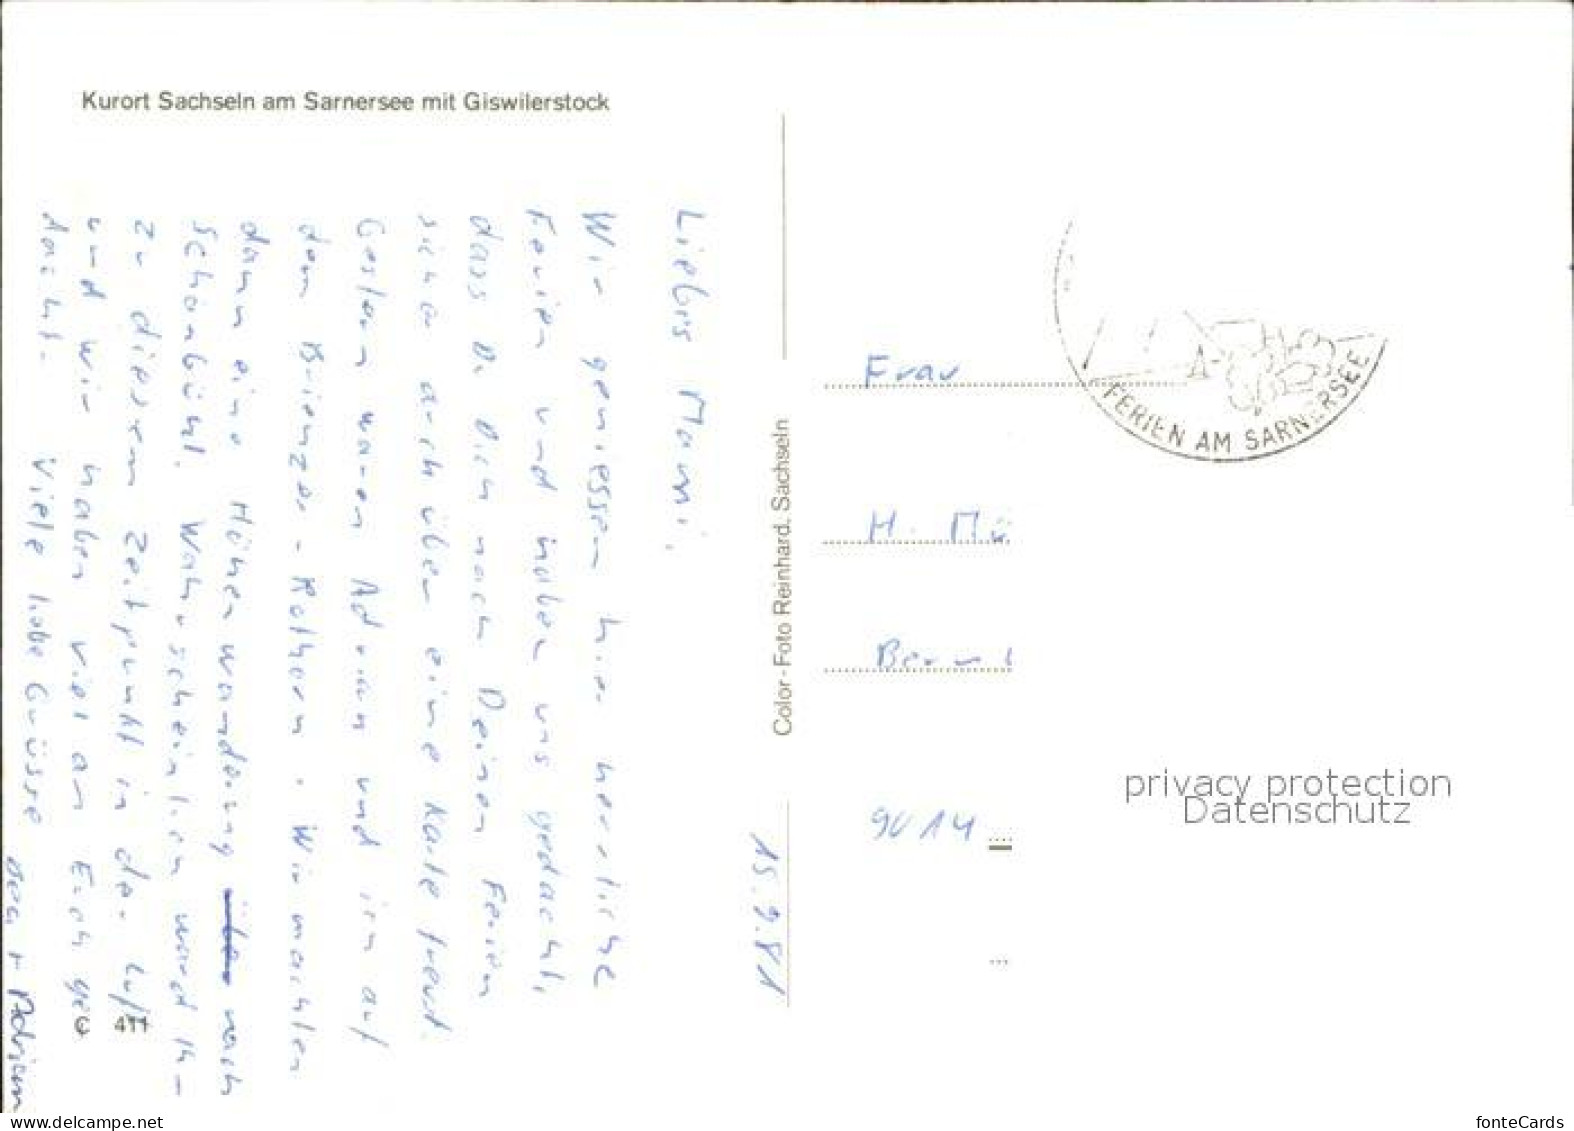 Kurort Sachseln am Sarnersee mit Giswilerstock
15.9.81
Liebs Mami,
Wir geniessen hier herrliche
Ferien und haben uns gedacht,
dass Du Dich nach Deinen Ferien
sicher auch über eine Karte freust.
Gestern waren Adrian und ich auf
dem Brienzer-Rothorn. Wir machten
dann eine Höhenwanderung über nach
Schönbühl. Wahrscheinlich ward ih-
zu diesem Zeitpunkt in der Luft
und wir haben viel an Euch ge-
dacht. Viele liebe Grüsse
+ Adrian
© 411
Color-Foto Reinhard. Sachseln
FERIEN AM SARNERSEE
Frau
H. Mü
Bern
9014
privacy protection
Datenschutz
delcampe.net
fonteCards